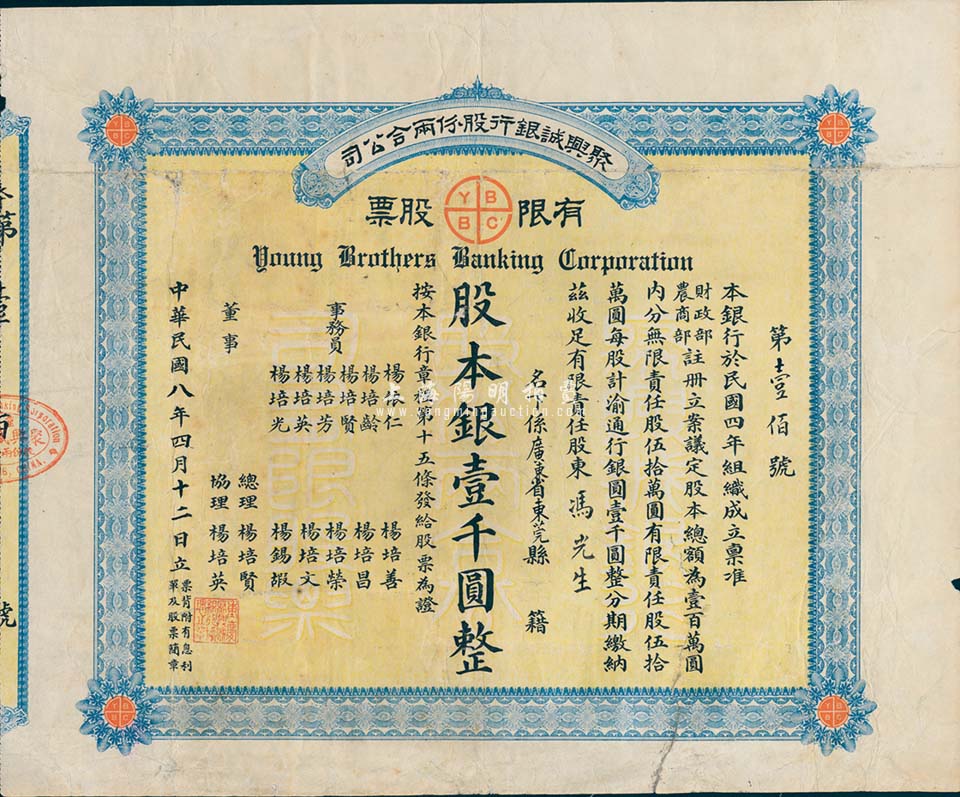 聚興誠銀行股份兩合公司
有限 股票
Y B
B C
Young Brothers Banking Corporation
第士壹佰號
本銀行於民國四年組織成立稟准
財政部
農商部
註册立案議定股本總額為壹百萬圓
內分無限責任股伍拾萬圓有限責任股伍拾
萬圓每股計渝通行銀圓壹千圓整分期繳納
茲收足有限責任股東 馮光生
名係廣東省東莞縣 籍
股本銀壹千圓整
按本銀行章程第十五條發給股票為證
事務員
楊依仁
楊培齡
楊培賢
楊培芳
楊培英
楊培光
楊培善
楊培昌
楊培榮
楊培文
楊錫嘏
董事
總理 楊培賢
協理 楊培英
中華民國八年四月十二日立
票背附有息利
單及股票簡章
上海陽明拍賣
www.yangmingauction.com
Y B
B C
Y B
B C
Y B
B C
Y B
B C
第
號